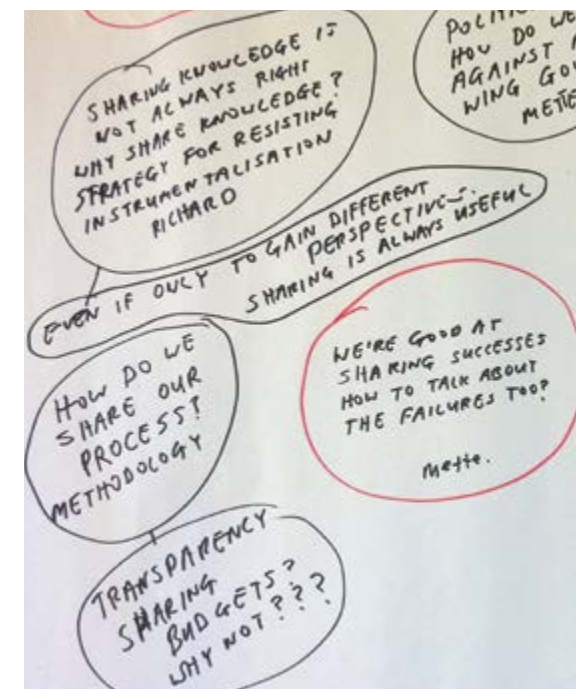 SHARING KNOWLEDGE IS
NOT ALWAYS RIGHT
WHY SHARE KNOWLEDGE?
STRATEGY FOR RESISTING
INSTRUMENTALISATION
RICHARD
HOW DO WE
AGAINST
WING
METTE
EVEN IF ONLY TO GAIN DIFFERENT
PERSPECTIVES.
SHARING IS ALWAYS USEFUL
HOW DO WE
SHARE OUR
PROCESS?
METHODOLOGY
WE'RE GOOD AT
SHARING SUCCESSES
HOW TO TALK ABOUT
THE FAILURES TOO?
Mette.
TRANSPARENCY
SHARING
BUDGETS?
WHY NOT???